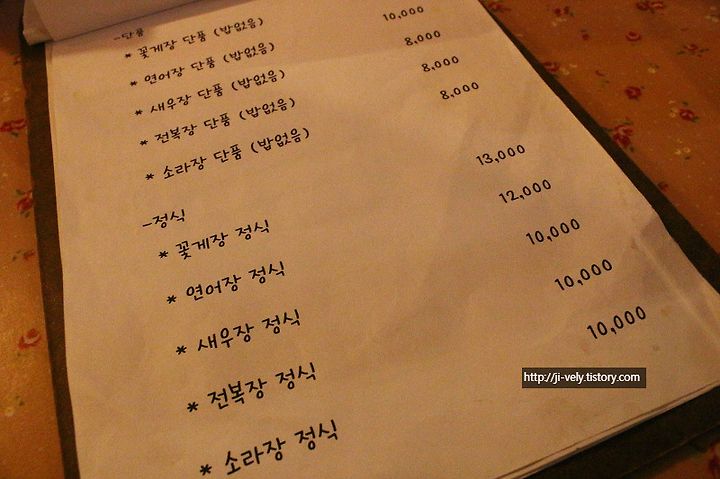 -단품
* 꽃게장 단품 (밥없음)
* 연어장 단품 (밥없음) 10,000
* 새우장 단품 (밥없음) 8,000
* 전복장 단품 (밥없음) 8,000
* 소라장 단품 (밥없음) 8,000
-정식
* 꽃게장 정식 13,000
* 연어장 정식 12,000
* 새우장 정식 10,000
* 전복장 정식 10,000
* 소라장 정식 10,000
http://ji-vely.tistory.com